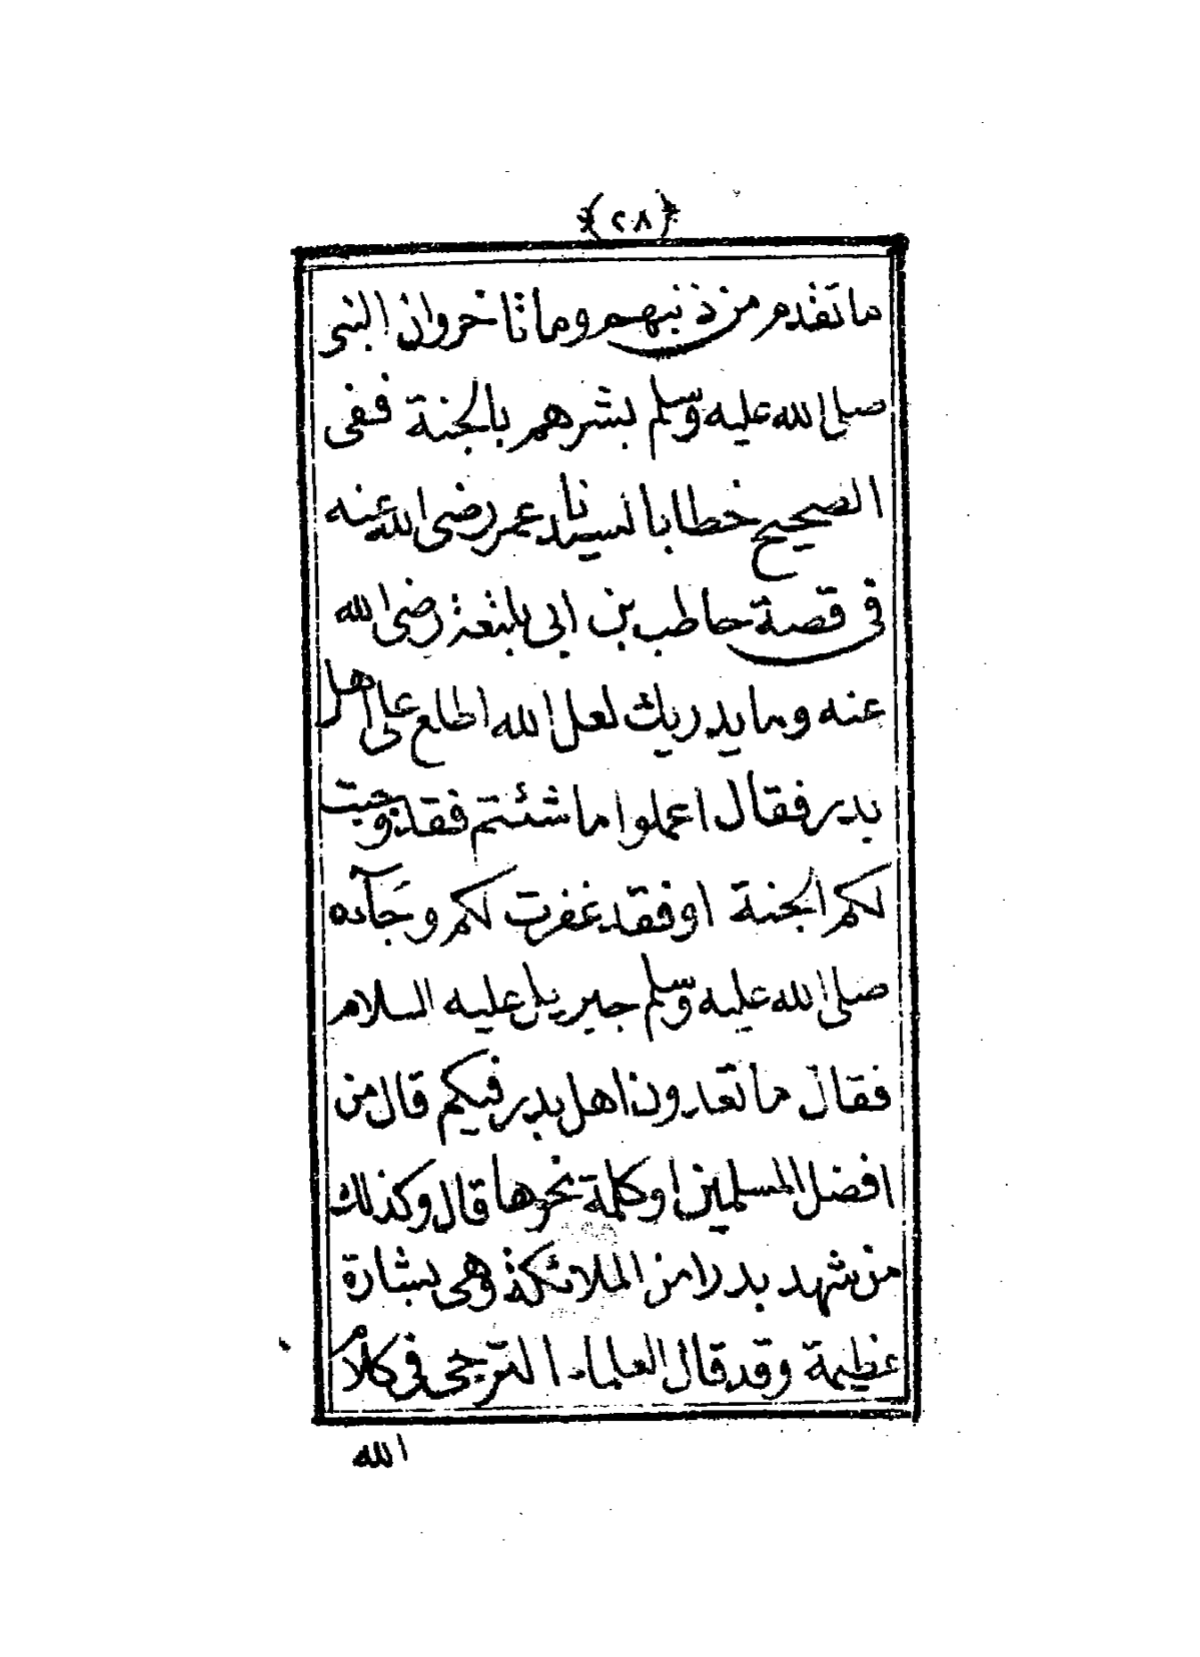 (٢٨)
ما تقدم من ذنبهم وما تاخر وان النبى
صلى الله عليه وسلم بشرهم بالجنة ففى
الصحيح خطابا لسيدنا عمر رضى الله عنه
فى قصة حاطب بن ابى بلتعة رضى الله
عنه وما يدريك لعل الله اطلع على اهل
بدر فقال اعملوا ما شئتم فقد وجبت
لكم الجنة او فقد غفرت لكم وجآءه
صلى الله عليه وسلم جبريل عليه السلام
فقال ما تعدون اهل بدر فيكم قال من
افضل المسلمين او كلمة نحوها قال وكذلك
من شهد بدرا من الملائكة وهى بشارة
عظيمة وقد قال العلماء الترجى فى كلام
الله